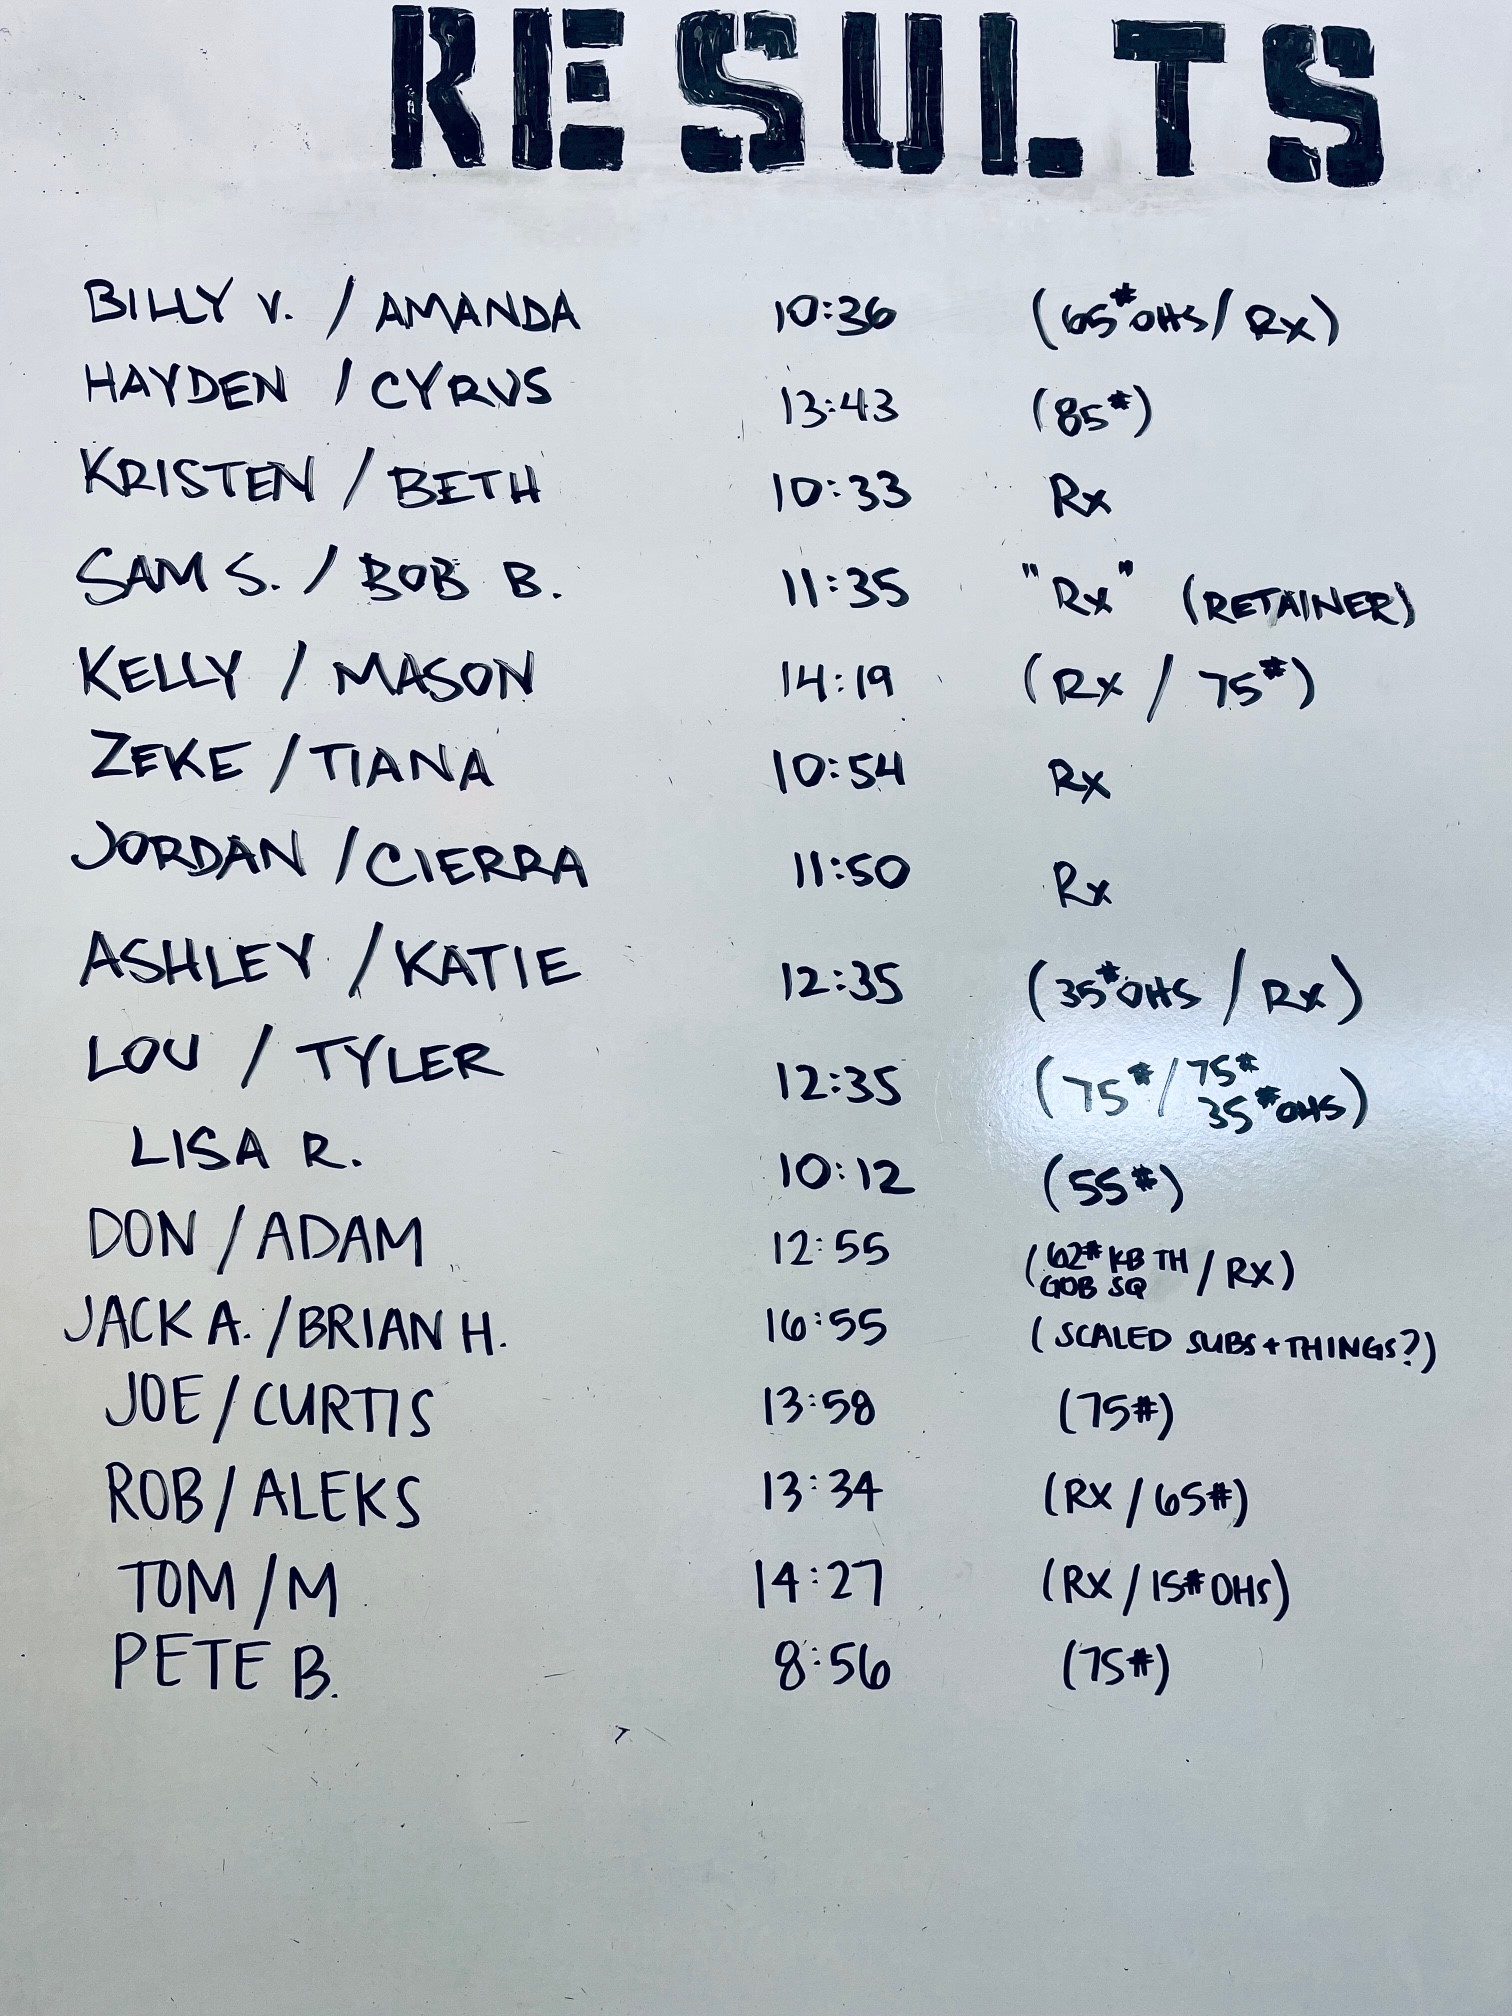 RESULTS
BILLY V. / AMANDA 10:36 (65# OHS / Rx)
HAYDEN / CYRUS 13:43 (85#)
KRISTEN / BETH 10:33 Rx
SAM S. / BOB B. 11:35 "Rx" (RETAINER)
KELLY / MASON 14:19 (Rx / 75#)
ZEKE / TIANA 10:54 Rx
JORDAN / CIERRA 11:50 Rx
ASHLEY / KATIE 12:35 (35# OHS / Rx)
LOU / TYLER 12:35 (75# / 75# 35# OHS)
LISA R. 10:12 (55#)
DON / ADAM 12:55 (62# KB TH GOB SQ / RX)
JACK A. / BRIAN H. 16:55 (SCALED SUBS + THINGS?)
JOE / CURTIS 13:58 (75#)
ROB / ALEKS 13:34 (RX / 65#)
TOM / M 14:27 (RX / 15# OHS)
PETE B. 8:56 (75#)